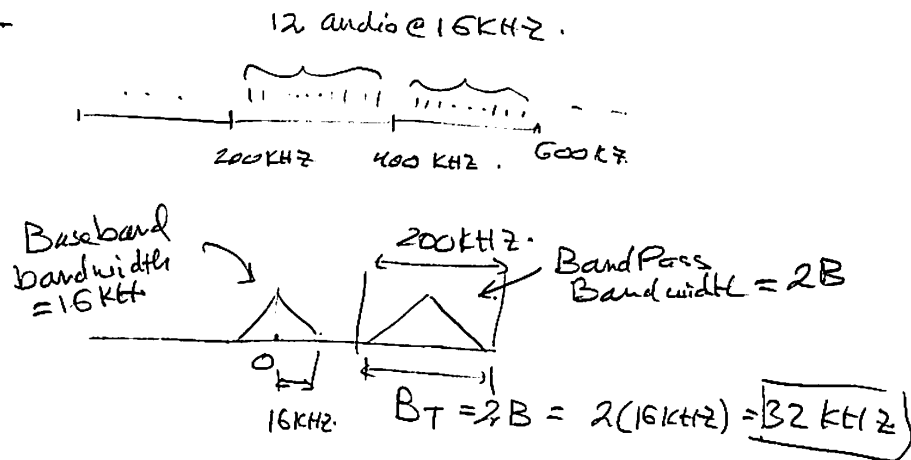 12 audio @ 16KHZ.
200KHZ 400 KHZ. 600KZ
Baseband
bandwidth
=16KH
200KHZ.
BandPass
Bandwidth = 2B
0
16KHZ.
B_T = 2B = 2(16KHZ) = 32 KHZ